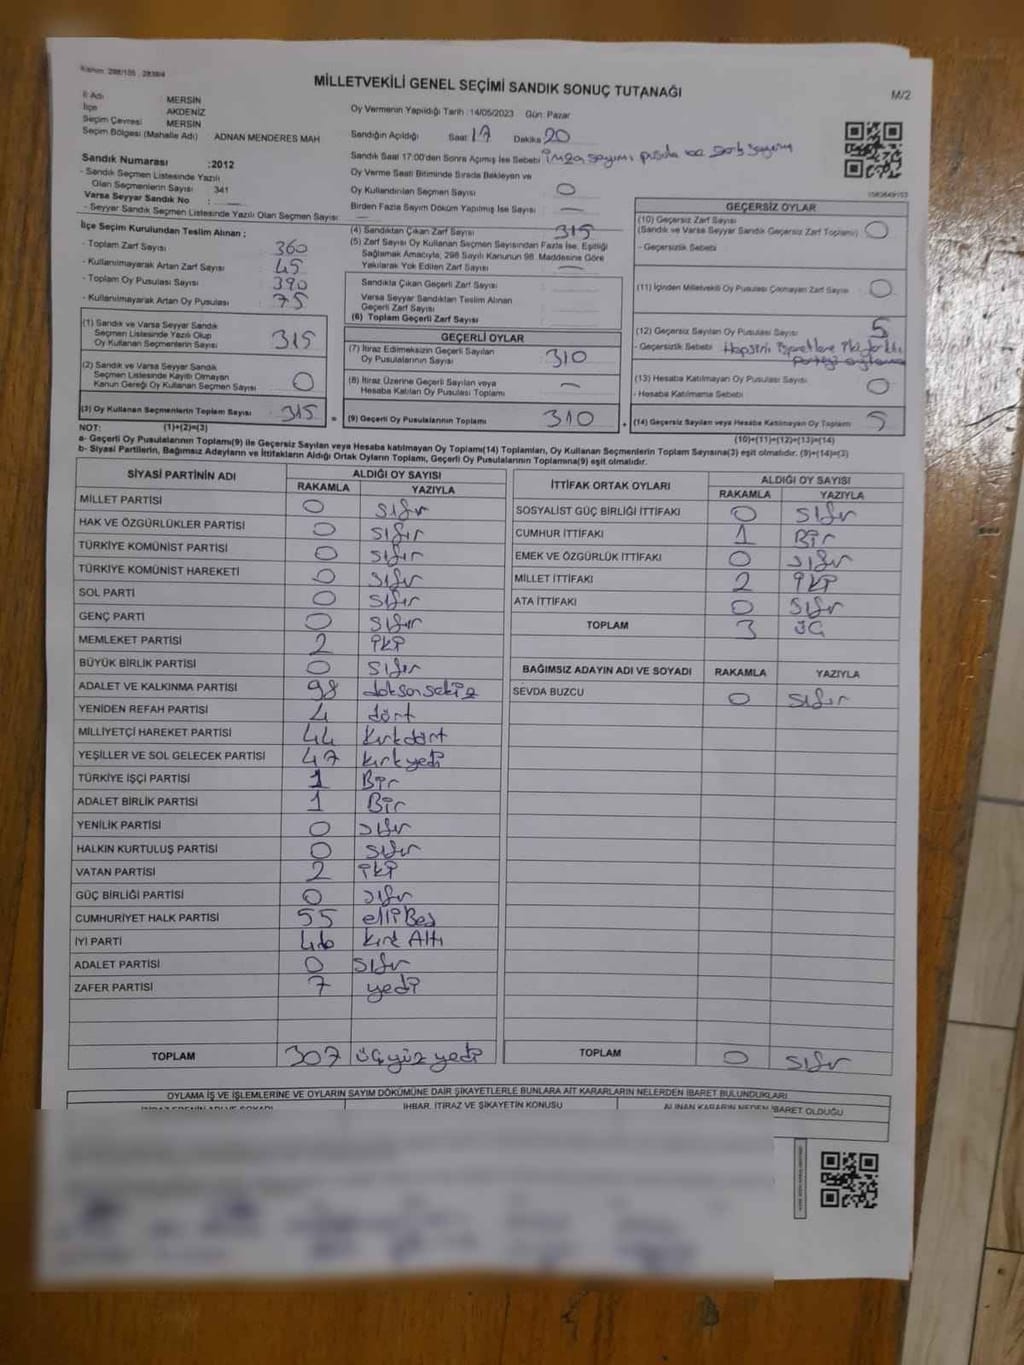 Kanun: 298/105 , 2839/4
MİLLETVEKİLİ GENEL SEÇİMİ SANDIK SONUÇ TUTANAĞI
M/2
İl Adı : MERSİN
İlçe : AKDENİZ
Seçim Çevresi : MERSİN
Seçim Bölgesi (Mahalle Adı) ADNAN MENDERES MAH
Sandık Numarası :2012
- Sandık Seçmen Listesinde Yazılı
Olan Seçmenlerin Sayısı 341
Varsa Seyyar Sandık No :
- Seyyar Sandık Seçmen Listesinde Yazılı Olan Seçmen Sayısı: —
Oy Vermenin Yapıldığı Tarih :14/05/2023 Gün: Pazar
Sandığın Açıldığı Saat 17 Dakika 20
Sandık Saat 17:00'den Sonra Açılmış İse Sebebi imza sayımı pusula ve zarf sayımı
Oy Verme Saati Bitiminde Sırada Bekleyen ve
Oy Kullandırılan Seçmen Sayısı 0
Birden Fazla Sayım Döküm Yapılmış İse Sayısı —
İlçe Seçim Kurulundan Teslim Alınan ;
- Toplam Zarf Sayısı : 360
- Kullanılmayarak Artan Zarf Sayısı : 45
- Toplam Oy Pusulası Sayısı : 390
- Kullanılmayarak Artan Oy Pusulası : 75
(1) Sandık ve Varsa Seyyar Sandık
Seçmen Listesinde Yazılı Olup
Oy Kullanan Seçmenlerin Sayısı 315
(2) Sandık ve Varsa Seyyar Sandık
Seçmen Listesinde Kaydı Olmayan
Kanun Gereği Oy Kullanan Seçmen Sayısı 0
(3) Oy Kullanan Seçmenlerin Toplam Sayısı 315 =
(1)+(2)=(3)
(4) Sandıktan Çıkan Zarf Sayısı 315
(5) Zarf Sayısı Oy Kullanan Seçmen Sayısından Fazla İse, Eşitliği
Sağlamak Amacıyla; 298 Sayılı Kanunun 98. Maddesine Göre
Yakılarak Yok Edilen Zarf Sayısı —
Sandıkta Çıkan Geçerli Zarf Sayısı
Varsa Seyyar Sandıktan Teslim Alınan
Geçerli Zarf Sayısı
(6) Toplam Geçerli Zarf Sayısı
GEÇERLİ OYLAR
(7) İtiraz Edilmeksizin Geçerli Sayılan
Oy Pusulalarının Sayısı 310
(8) İtiraz Üzerine Geçerli Sayılan veya
Hesaba Katılan Oy Pusulası Toplamı —
(9) Geçerli Oy Pusulalarının Toplamı 310 +
GEÇERSİZ OYLAR
(10) Geçersiz Zarf Sayısı
(Sandık ve Varsa Seyyar Sandık Geçersiz Zarf Toplamı) 0
- Geçersizlik Sebebi
(11) İçinden Milletvekili Oy Pusulası Çıkmayan Zarf Sayısı 0
(12) Geçersiz Sayılan Oy Pusulası Sayısı 5
- Geçersizlik Sebebi
(13) Hesaba Katılmayan Oy Pusulası Sayısı 0
- Hesaba Katılmama Sebebi
(14) Geçersiz Sayılan veya Hesaba Katılmayan Oy Toplamı 5
(10)+(11)+(12)+(13)=(14)
NOT:
a- Geçerli Oy Pusulalarının Toplamı(9) ile Geçersiz Sayılan veya Hesaba katılmayan Oy Toplamı(14) Toplamları, Oy Kullanan Seçmenlerin Toplam Sayısına(3) eşit olmalıdır. (9)+(14)=(3)
b- Siyasi Partilerin, Bağımsız Adayların ve İttifakların Aldığı Ortak Oyların Toplamı, Geçerli Oy Pusulalarının Toplamına(9) eşit olmalıdır.
SİYASİ PARTİNİN ADI ALDIĞI OY SAYISI
RAKAMLA YAZIYLA
MİLLET PARTİSİ 0 sıfır
HAK VE ÖZGÜRLÜKLER PARTİSİ 0 sıfır
TÜRKİYE KOMÜNİST PARTİSİ 0 sıfır
TÜRKİYE KOMÜNİST HAREKETİ 0 sıfır
SOL PARTİ 0 sıfır
GENÇ PARTİ 0 sıfır
MEMLEKET PARTİSİ 2 iki
BÜYÜK BİRLİK PARTİSİ 0 sıfır
ADALET VE KALKINMA PARTİSİ 98 doksan sekiz
YENİDEN REFAH PARTİSİ 4 dört
MİLLİYETÇİ HAREKET PARTİSİ 44 kırkdört
YEŞİLLER VE SOL GELECEK PARTİSİ 47 kırkyedi
TÜRKİYE İŞÇİ PARTİSİ 1 Bir
ADALET BİRLİK PARTİSİ 1 Bir
YENİLİK PARTİSİ 0 sıfır
HALKIN KURTULUŞ PARTİSİ 0 sıfır
VATAN PARTİSİ 2 iki
GÜÇ BİRLİĞİ PARTİSİ 0 sıfır
CUMHURİYET HALK PARTİSİ 55 elli Beş
İYİ PARTİ 46 kırk Altı
ADALET PARTİSİ 0 sıfır
ZAFER PARTİSİ 7 yedi
TOPLAM 307 üçyüz yedi
İTTİFAK ORTAK OYLARI ALDIĞI OY SAYISI
RAKAMLA YAZIYLA
SOSYALİST GÜÇ BİRLİĞİ İTTİFAKI 0 sıfır
CUMHUR İTTİFAKI 1 Bir
EMEK VE ÖZGÜRLÜK İTTİFAKI 0 sıfır
MİLLET İTTİFAKI 2 iki
ATA İTTİFAKI 0 sıfır
TOPLAM 3 üç
BAĞIMSIZ ADAYIN ADI VE SOYADI RAKAMLA YAZIYLA
SEVDA BUZCU 0 sıfır
TOPLAM 0 sıfır
OYLAMA İŞ VE İŞLEMLERİNE VE OYLARIN SAYIM DÖKÜMÜNE DAİR ŞİKAYETLERLE BUNLARA AİT KARARLARIN NELERDEN İBARET BULUNDUKLARI
İHBAR, İTİRAZ VE ŞİKAYETİN KONUSU
ALINAN KARARIN NEDEN İBARET OLDUĞU